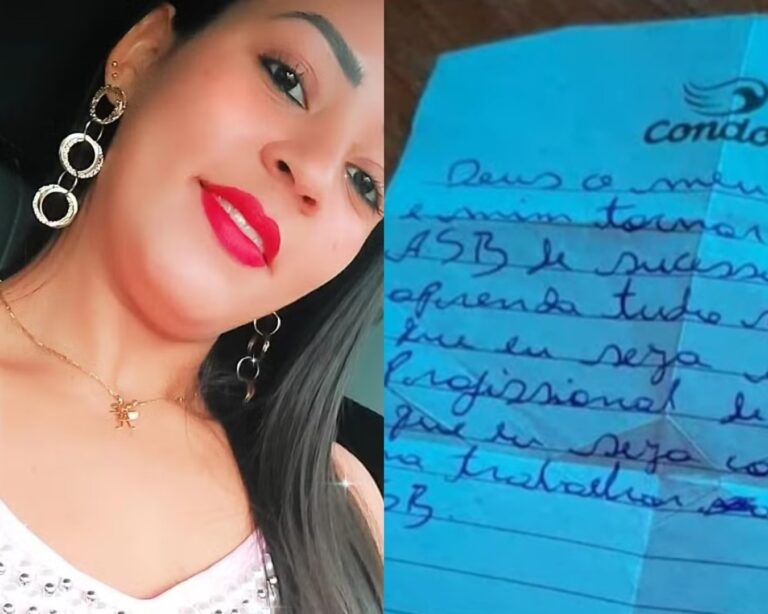 condo
Deus o meu
e mim tornar
ASB de sucess
aprenda tudo
que eu seja
Profissional de
que eu seja co
na trabalhar
SB.